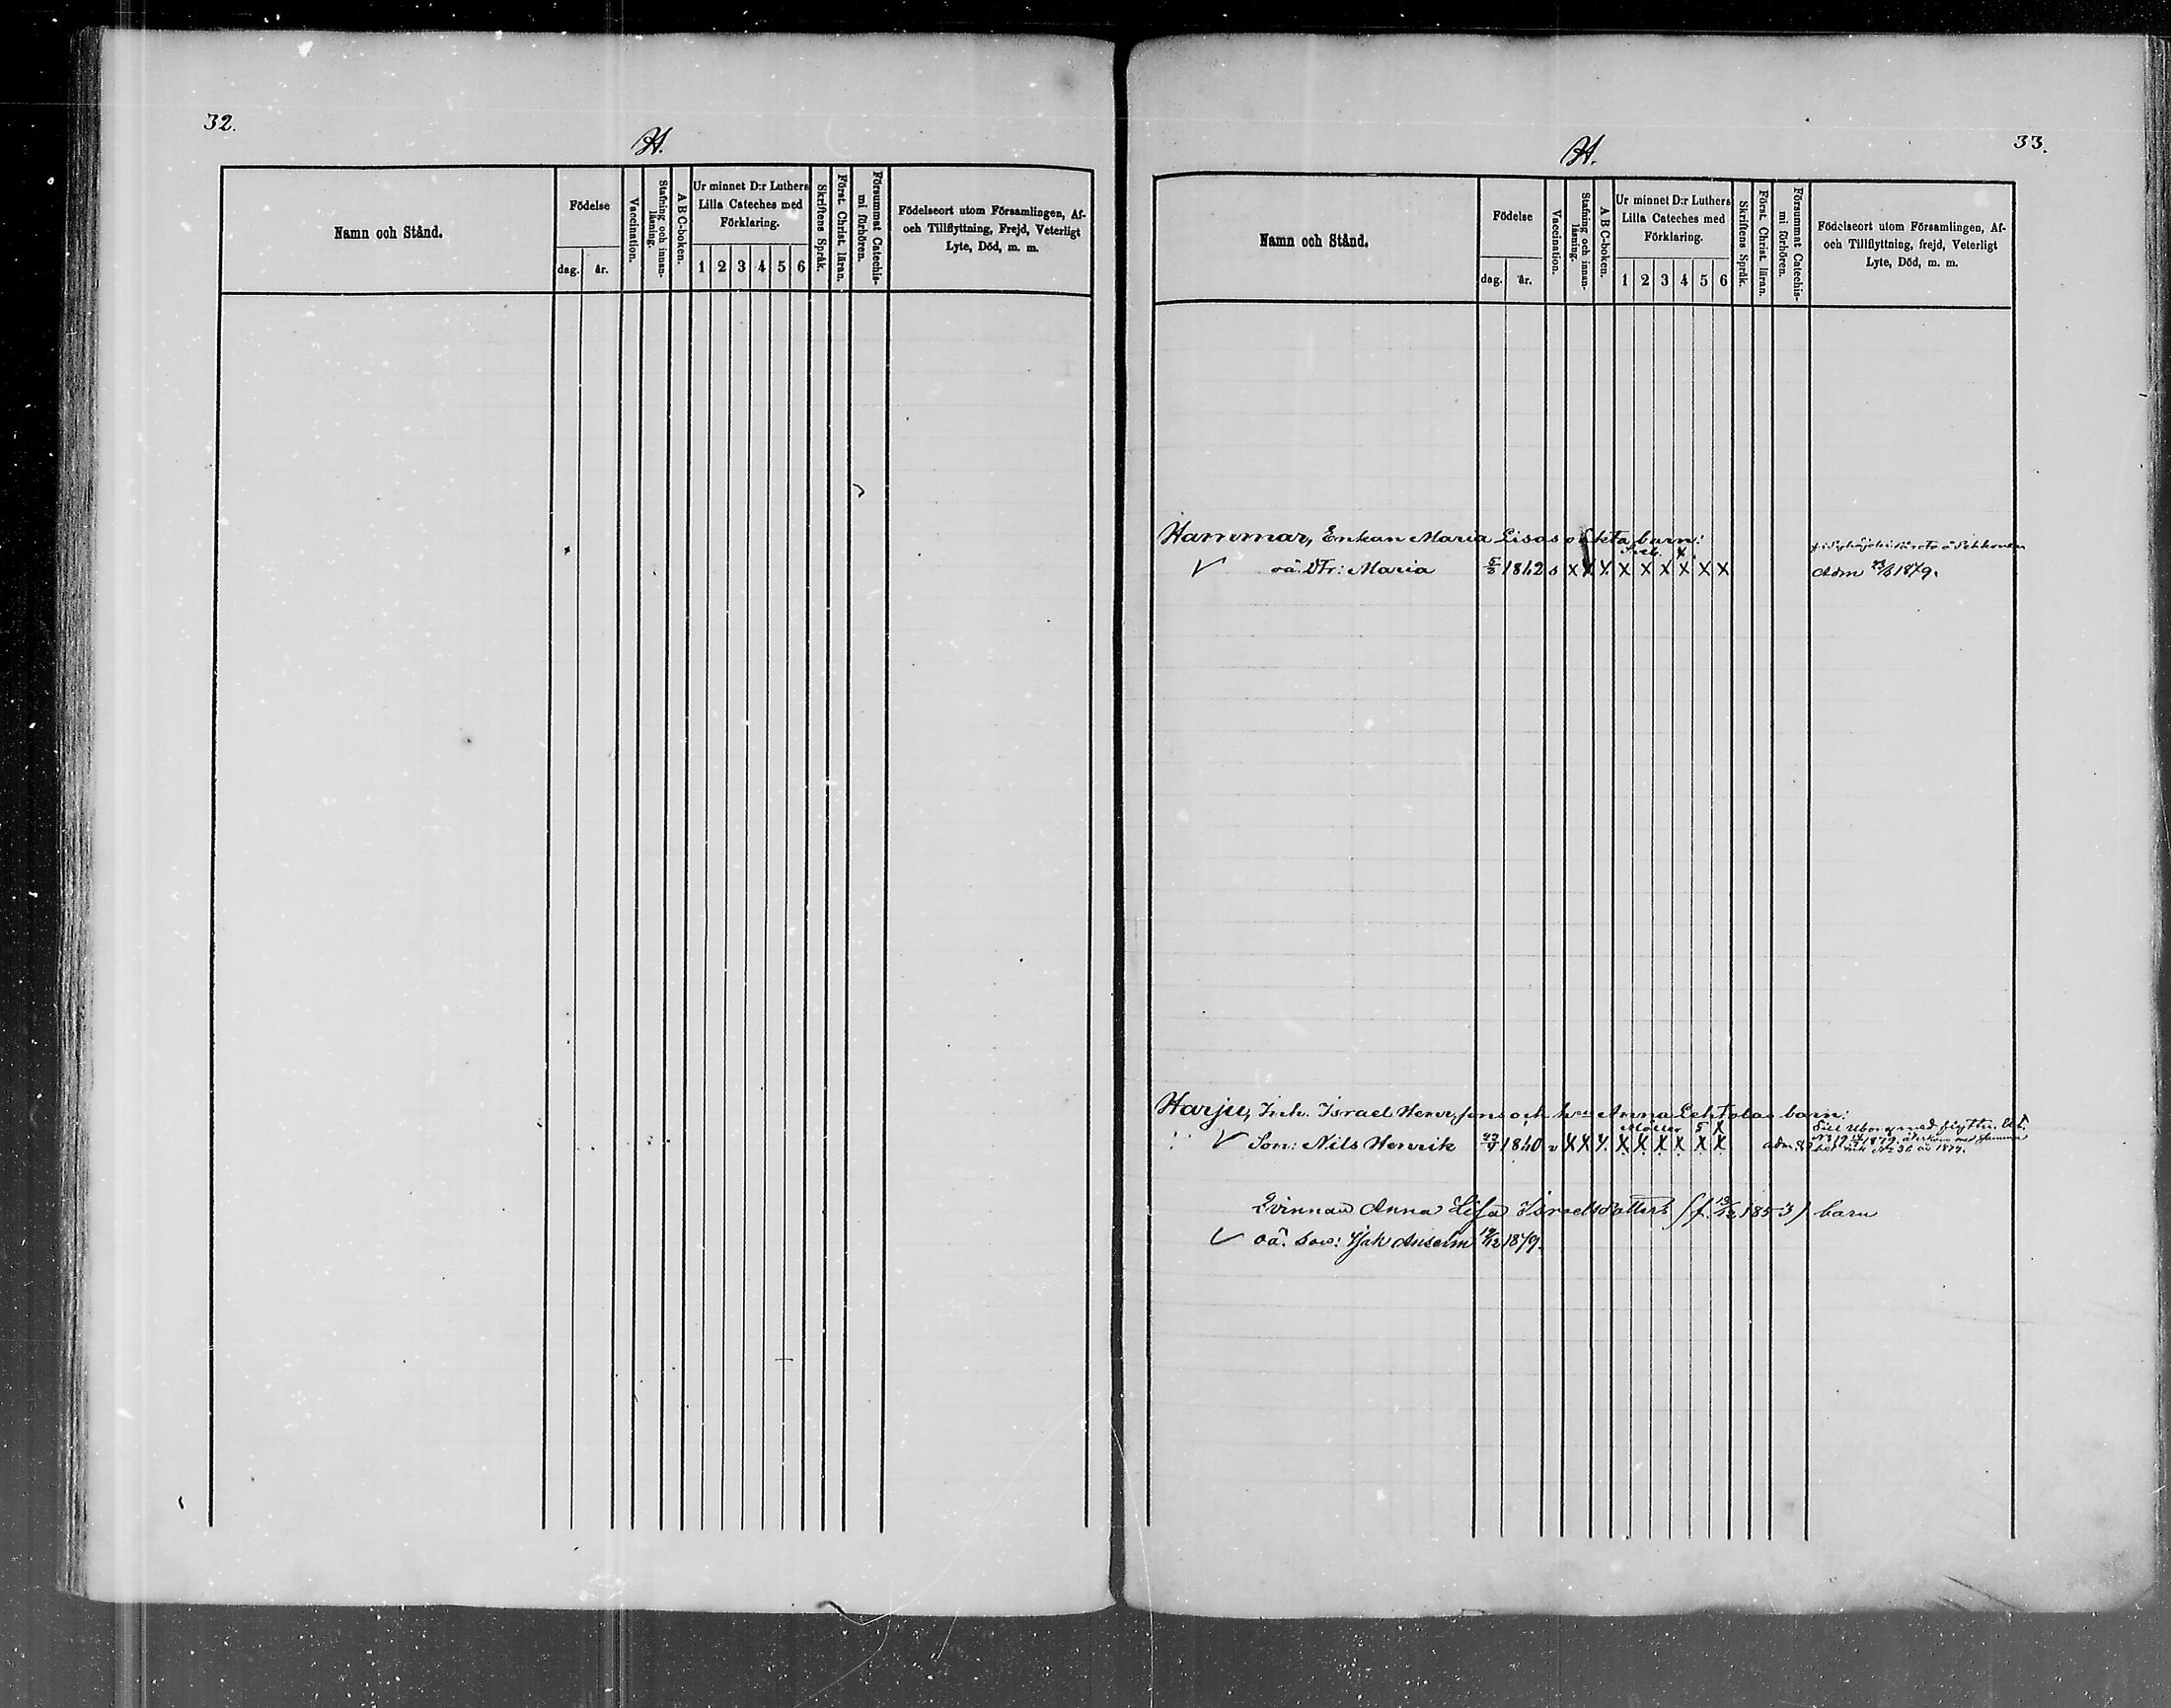 32.
H.
Namn och Stånd.
Födelse
dag.
år.
Vaccination.
Stafning och innan-
läsning.
A B C-boken.
Ur minnet D:r Luthers
Lilla Cateches med
Förklaring.
1 2 3 4 5 6
Skriftens Språk.
Först. Christ. läran.
Försummat Catechis-
mi förhören.
Födelseort utom Församlingen, Af-
och Tillflyttning, Frejd, Veterligt
Lyte, Död, m. m.
33.
H.
Namn och Stånd.
Födelse
dag.
år.
Vaccination.
Stafning och innan-
läsning.
A B C-boken.
Ur minnet D:r Luthers
Lilla Cateches med
Förklaring.
1 2 3 4 5 6
Skriftens Språk.
Först. Christ. läran.
Försummat Catechis-
mi förhören.
Födelseort utom Församlingen, Af-
och Tillflyttning, frejd, Veterligt
Lyte, Död, m. m.
Hammar, Enkan Maria Lisas oäkta barn:
oä. Dtr: Maria 1842 x x x x x x x x x Adm 1879.
Harju, Inh. Israel Henr.sons och Anna Lehtolas barn:
Möller 5 X
Son: Nils Henrik 1840 v X X X X X X X X X adm.
Till Uleåborg med flyttn. bet.
1879. återkom med samma
bet. N:o 36 år 1879.
Qvinnan Anna Lisa Israelsdotters (f. 1853) barn
oä. Son: Isak Anselm 1879.